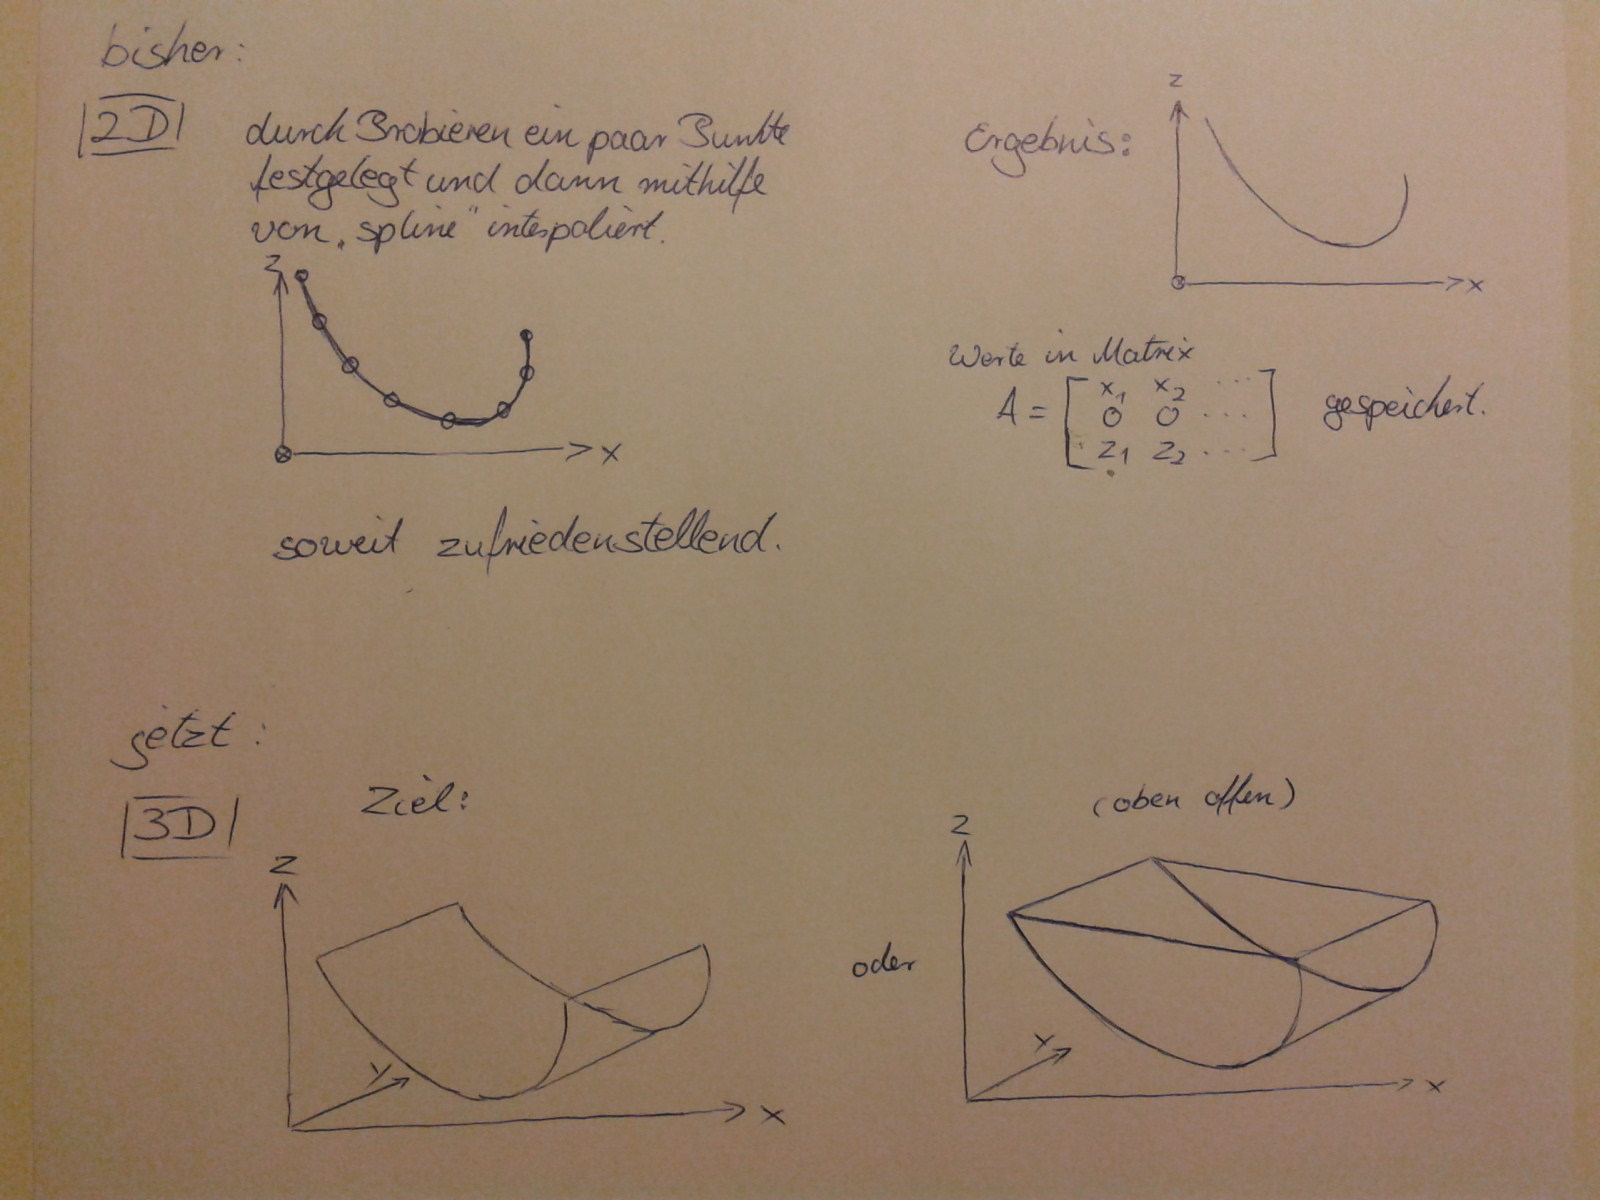 bisher:
2D
durch Probieren ein paar Punkte
festgelegt und dann mithilfe
von „spline" interpoliert.
z
x
soweit zufriedenstellend.
Ergebnis:
z
x
Werte in Matrix
A = [ x1 x2 ...
0 0 ...
z1 z2 ... ] gespeichert.
jetzt:
3D
Ziel:
z
y
x
oder
(oben offen)
z
y
x